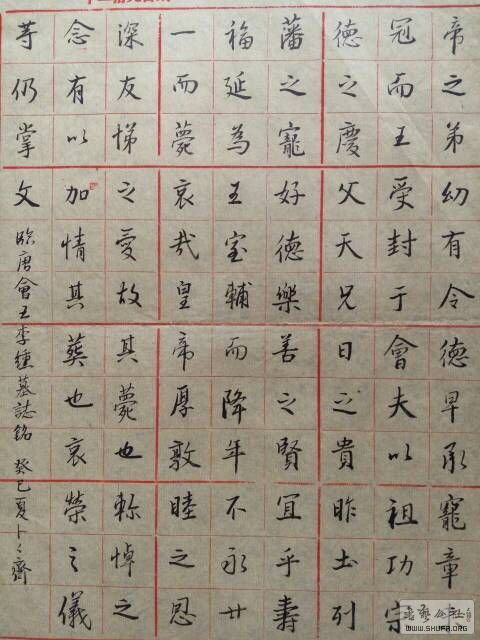 帝之弟幼有令德早承寵章
冠而王受封于會夫以祖功宗
德之慶父天兄日之貴昨土列
藩之寵好德樂善之賢宜乎壽
福延為王室輔而降年不永廿
一而薨哀哉皇帝厚敦睦之恩
深友悌之愛故其薨也軫悼之
念有以加情其葬也哀榮之儀
等仍掌文
臨唐會王李纁墓誌銘 癸巳夏卜々齋
WWW.SHUFA.ORG